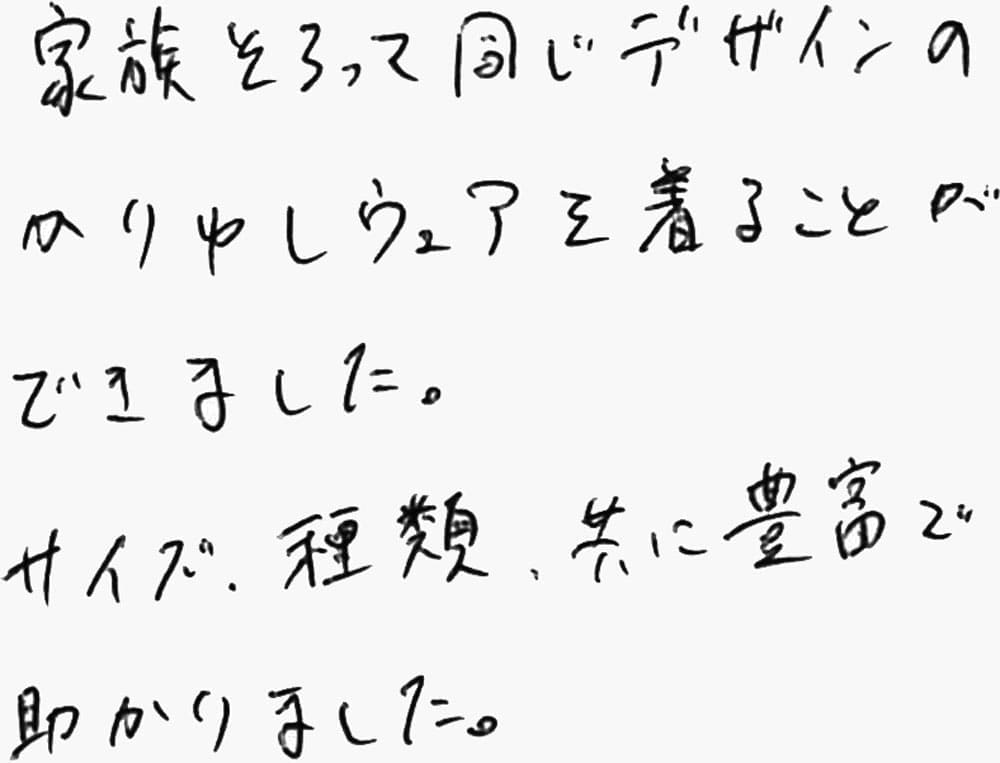 家族そろって同じデザインの
かりゆしウェアを着ることが
できました。
サイズ、種類、共に豊富で
助かりました。